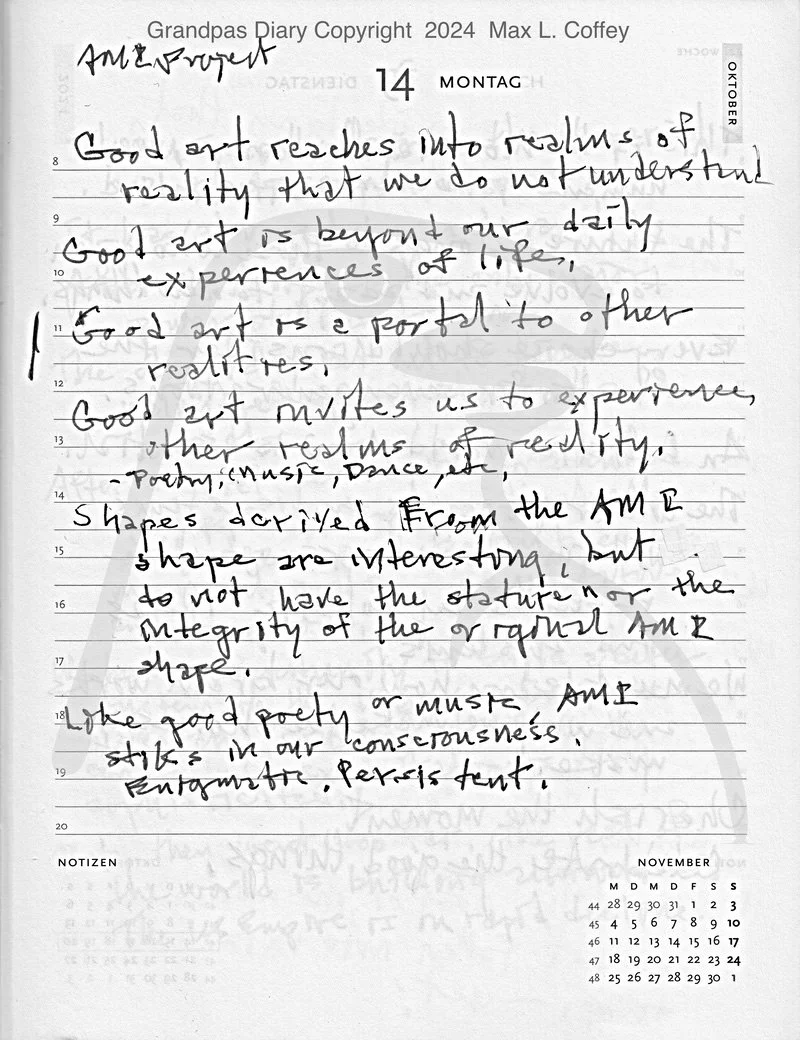 Grandpas Diary Copyright 2024 Max L. Coffey
AMI Project
14 MONTAG
OKTOBER
8 Good art reaches into realms of
reality that we do not understand
9 Good art is beyond our daily
10 experiences of life.
11 Good art is a portal to other
realities.
12 Good art invites us to experience
13 other realms of reality.
- Poetry, music, Dance, etc.
14 Shapes derived From the AMI
15 shape are interesting, but
16 do not have the stature nor the
integrity of the original AMI
17 shape.
18 Like good poety or music, AMI
stiks in our consciousness.
19 Enigmatic. Persistent.
20
NOTIZEN
NOVEMBER
M D M D F S S
44 28 29 30 31 1 2 3
45 4 5 6 7 8 9 10
46 11 12 13 14 15 16 17
47 18 19 20 21 22 23 24
48 25 26 27 28 29 30 1